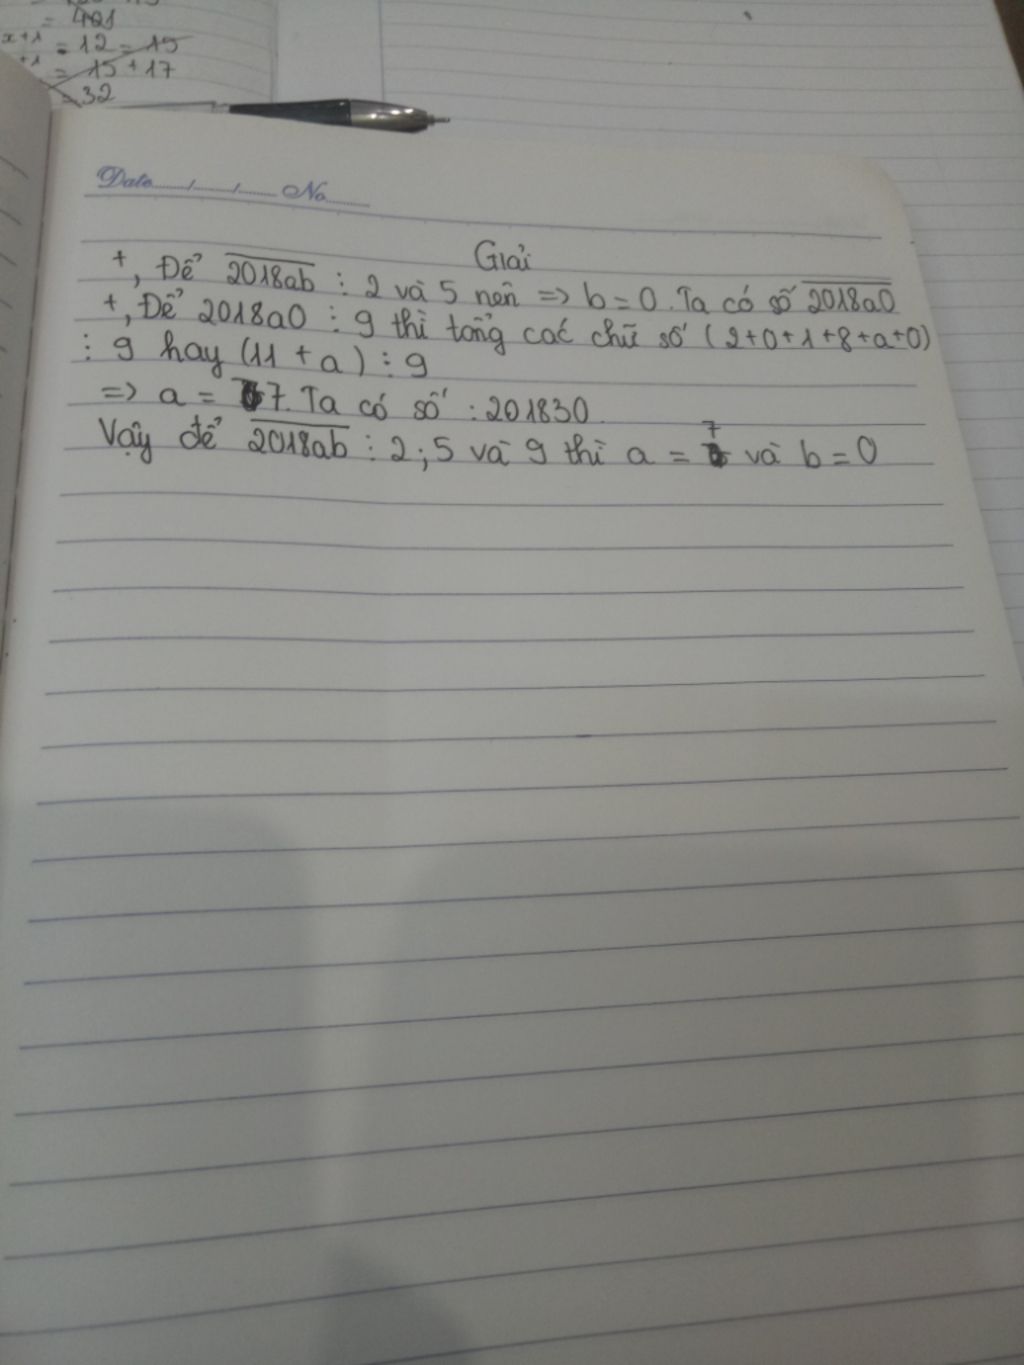 = 401
x+1 = 12 = 15
+1 = 15 + 17
= 32
Date...../...../..... No.....
Giải
+, Để 2018ab ⋮ 2 và 5 nên => b = 0. Ta có số 2018a0
+, Để 2018a0 ⋮ 9 thì tổng các chữ số (2+0+1+8+a+0)
⋮ 9 hay (11 + a) ⋮ 9
=> a = 7. Ta có số : 201830
7
Vậy để 2018ab ⋮ 2; 5 và 9 thì a = và b = 0